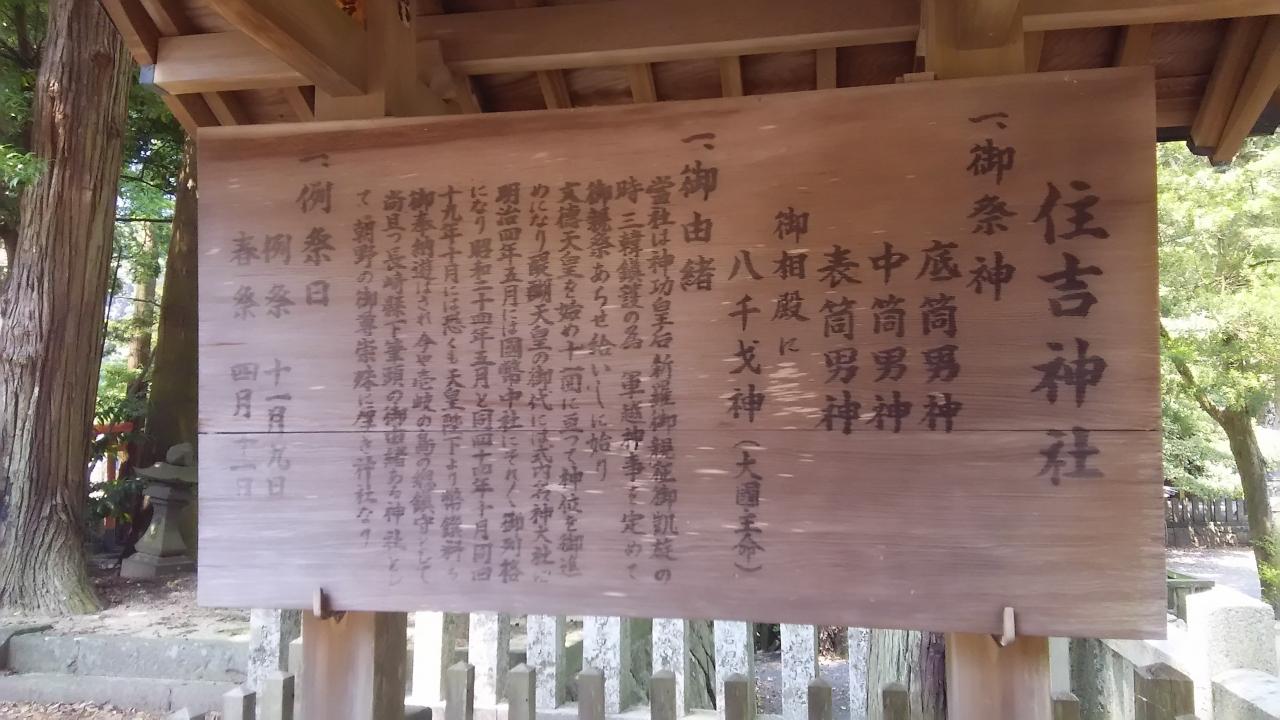 住吉神社
一、御祭神
底筒男神
中筒男神
表筒男神
御相殿に
八千戈神（大國主命）
一、御由緒
當社は神功皇后新羅御親征御凱旋の
時三韓鎮護の為 軍越神事を定めて
御親祭あらせ給いしに始り
文德天皇を始め十一箇に亘って神位を御進
めになり醍醐天皇の御代には式内名神大社に
明治四年五月には國幣中社にそれ〲御列格
になり昭和二十四年五月と同四十四年十月同四
十九年十月には恐くも天皇陛下より幣饌料を
御奉納遊ばされ今や壱岐の島の総鎮守として
尚且つ長崎縣下筆頭の御由緒ある神社とし
て朝野の御尊崇殊に厚き神社なり
一、例祭日
例祭 十一月九日
春祭 四月十二日